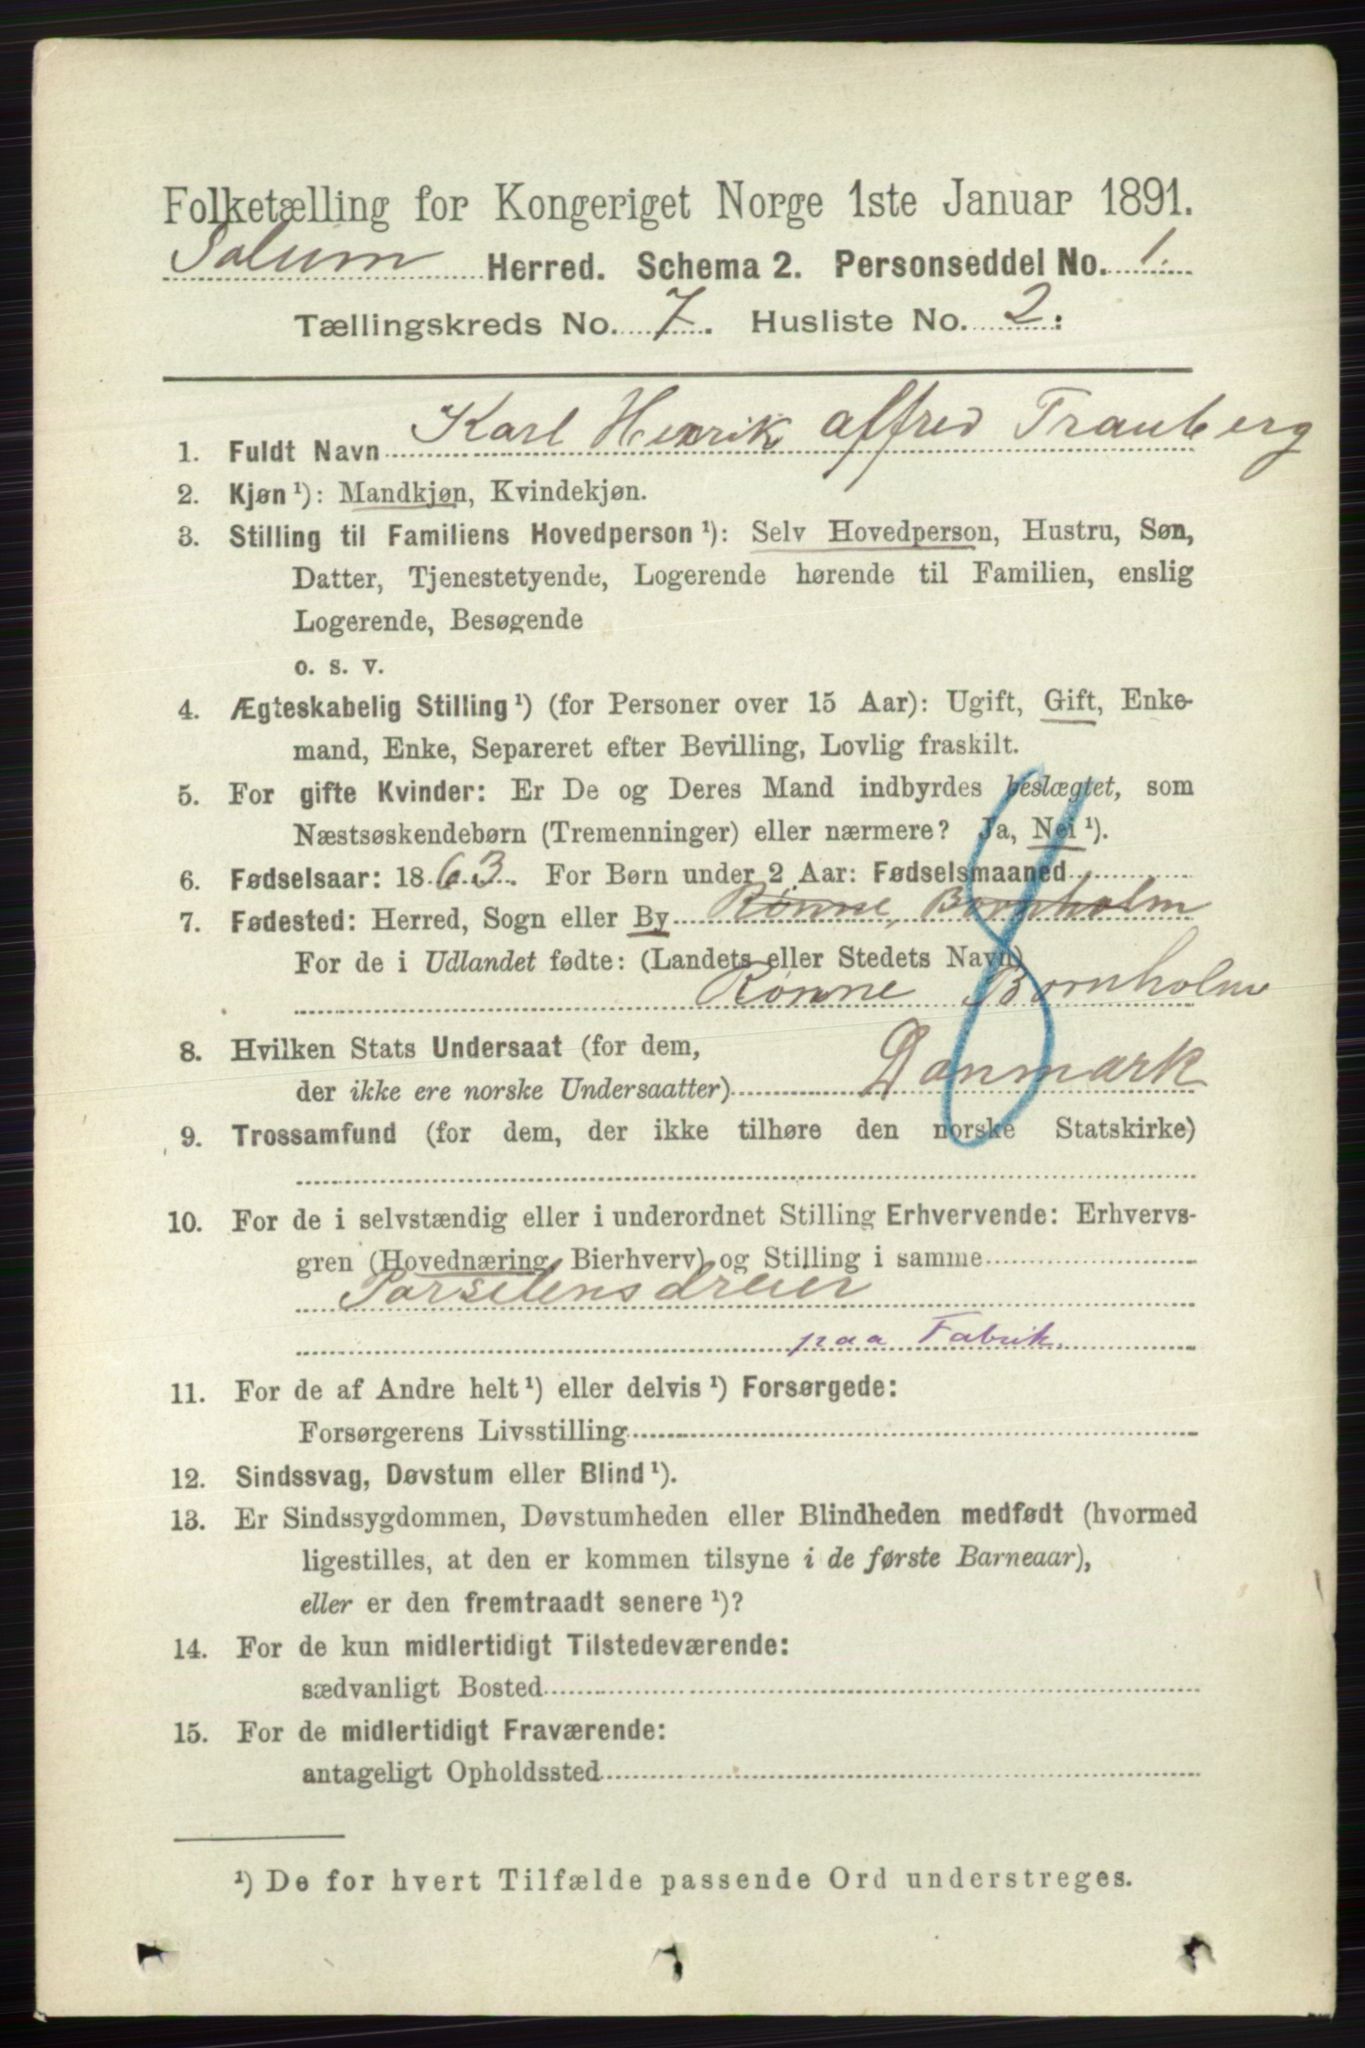 Folketælling for Kongeriget Norge 1ste Januar 1891.
Solum Herred. Schema 2. Personseddel No. 1.
Tællingskreds No. 7. Husliste No. 2:
1. Fuldt Navn Karl Henrik Alfred Trauberg
2. Kjøn ¹): Mandkjøn, Kvindekjøn.
3. Stilling til Familiens Hovedperson ¹): Selv Hovedperson, Hustru, Søn,
Datter, Tjenestetyende, Logerende hørende til Familien, enslig
Logerende, Besøgende
o. s. v.
4. Ægteskabelig Stilling ¹) (for Personer over 15 Aar): Ugift, Gift, Enke-
mand, Enke, Separeret efter Bevilling, Lovlig fraskilt.
5. For gifte Kvinder: Er De og Deres Mand indbyrdes beslægtet, som
Næstsøskendebørn (Tremenninger) eller nærmere? Ja, Nei ¹).
6. Fødselsaar: 1863. For Børn under 2 Aar: Fødselsmaaned
7. Fødested: Herred, Sogn eller By Rønne, Bornholm
For de i Udlandet fødte: (Landets eller Stedets Navn)
Rønne Bornholm
8
8. Hvilken Stats Undersaat (for dem,
der ikke ere norske Undersaatter) Danmark
9. Trossamfund (for dem, der ikke tilhøre den norske Statskirke)
10. For de i selvstændig eller i underordnet Stilling Erhvervende: Erhvervs-
gren (Hovednæring, Bierhverv) og Stilling i samme
Porselensdreier
paa Fabrik.
11. For de af Andre helt ¹) eller delvis ¹) Forsørgede:
Forsørgerens Livsstilling
12. Sindssvag, Døvstum eller Blind ¹).
13. Er Sindssygdommen, Døvstumheden eller Blindheden medfødt (hvormed
ligestilles, at den er kommen tilsyne i de første Barneaar),
eller er den fremtraadt senere ¹)?
14. For de kun midlertidigt Tilstedeværende:
sædvanligt Bosted
15. For de midlertidigt Fraværende:
antageligt Opholdssted
¹) De for hvert Tilfælde passende Ord understreges.